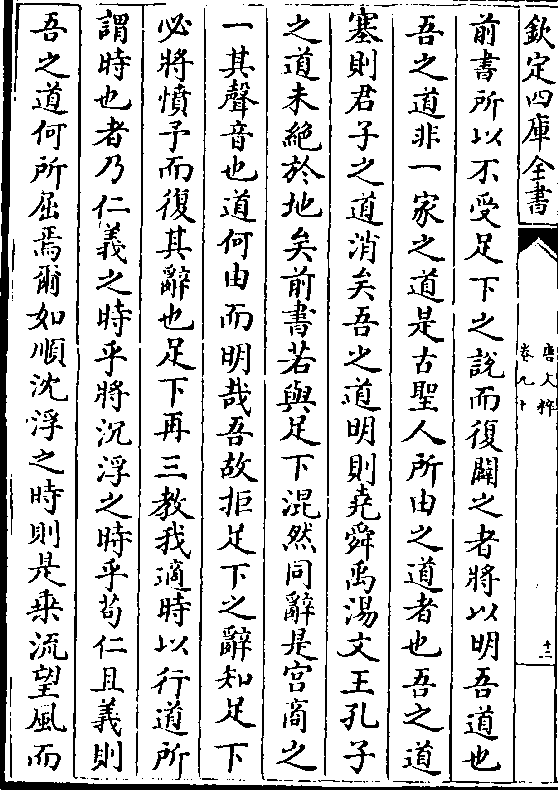 欽定四庫全書
唐文粹
卷九十
十三
前書所以不受足下之說而復闢之者將以明吾道也
吾之道非一家之道是古聖人所由之道者也吾之道
塞則君子之道消矣吾之道明則堯舜禹湯文王孔子
之道未絕於地矣前書若與足下混然同辭是宮商之
一其聲音也道何由而明哉吾故拒足下之辭知足下
必將憤予而復其辭也足下再三教我適時以行道所
謂時也者乃仁義之時乎將沉浮之時乎苟仁且義則
吾之道何所屈焉爾如順沈浮之時則是乗流望風而